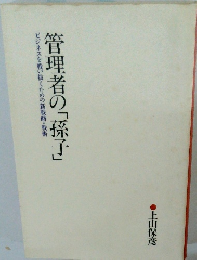 管理者の「孫子」
ビジネスを戦い抜くための新戦略・戦術
●上山保彦